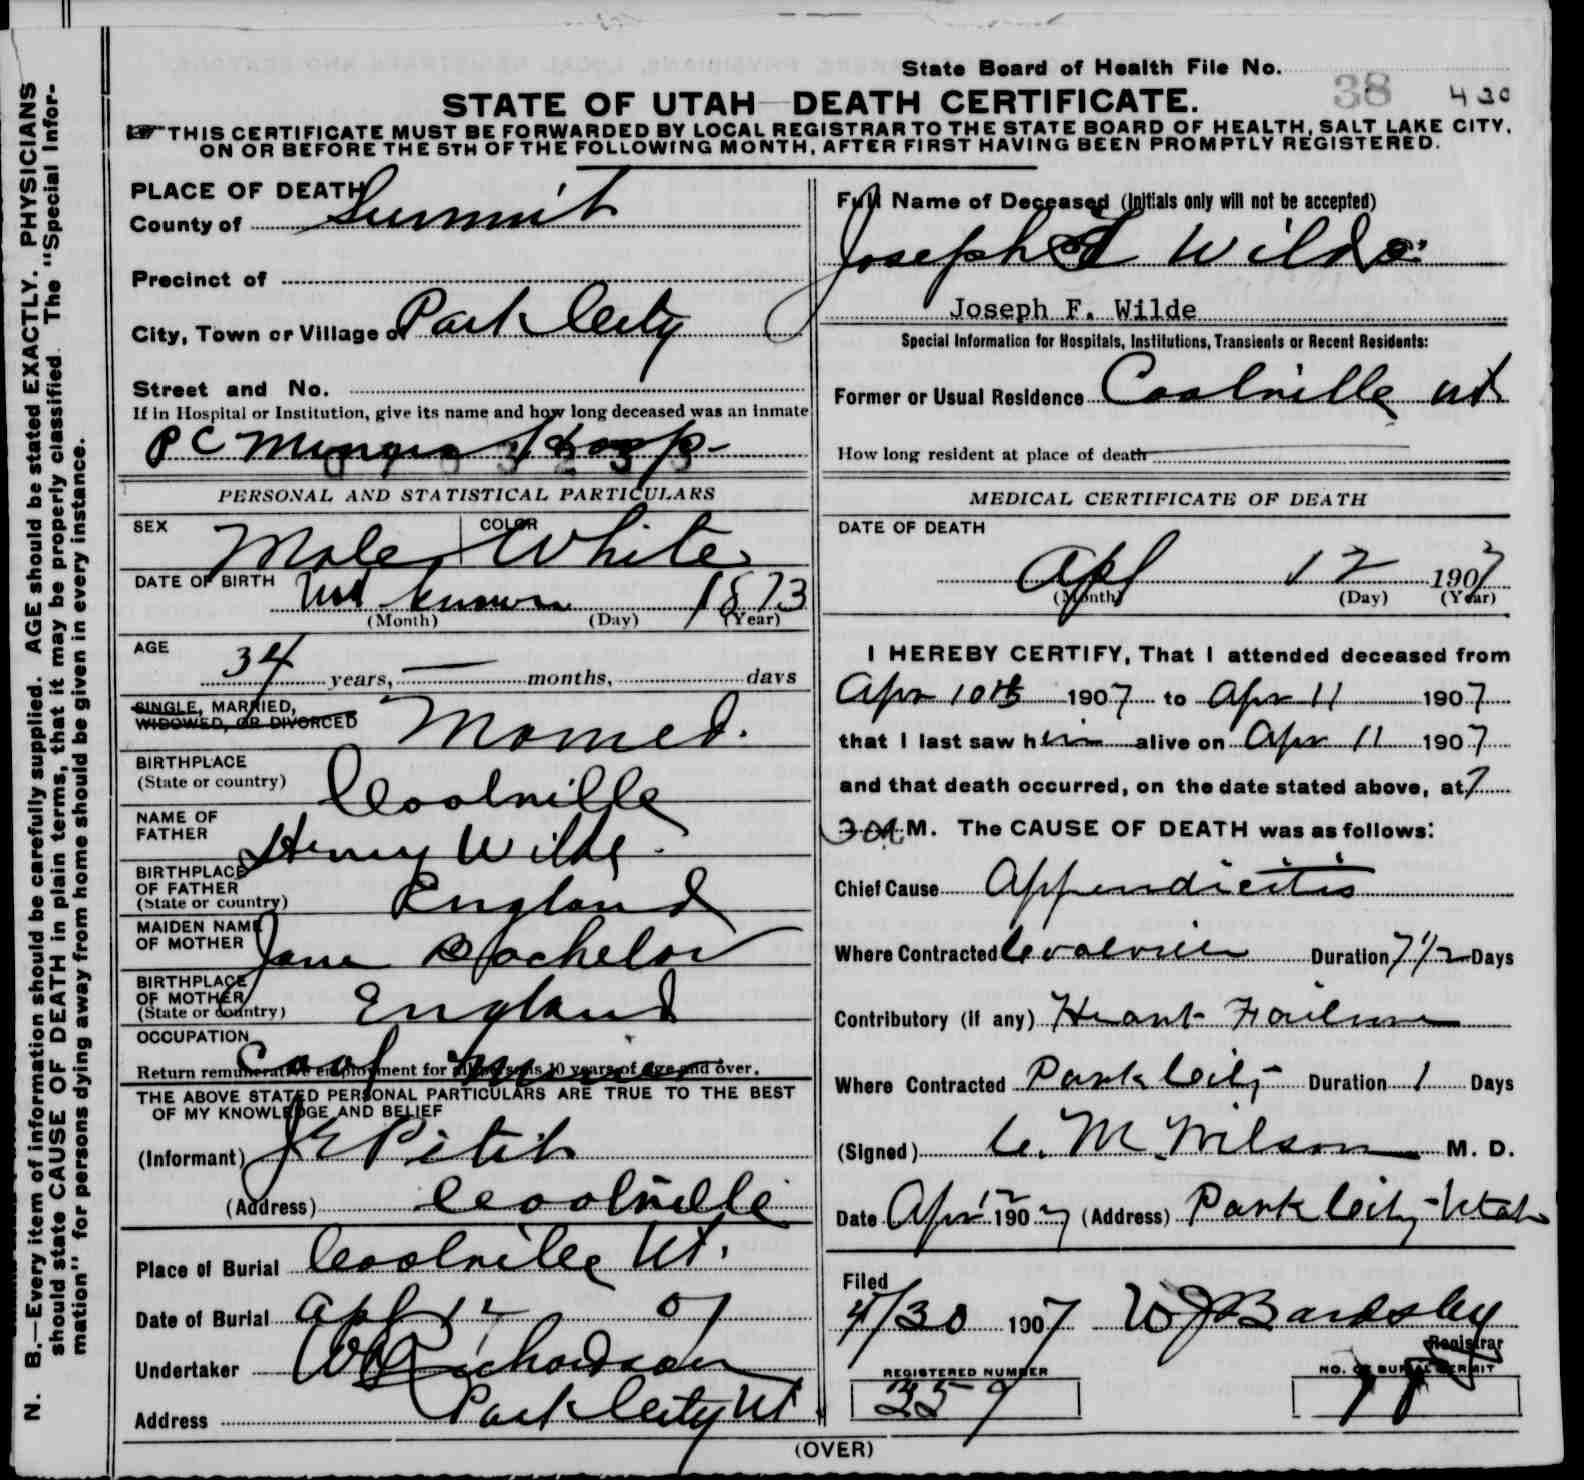 State Board of Health File No. 38 430
STATE OF UTAH—DEATH CERTIFICATE.
THIS CERTIFICATE MUST BE FORWARDED BY LOCAL REGISTRAR TO THE STATE BOARD OF HEALTH, SALT LAKE CITY,
ON OR BEFORE THE 5TH OF THE FOLLOWING MONTH, AFTER FIRST HAVING BEEN PROMPTLY REGISTERED.
N. B.—Every item of information should be carefully supplied. AGE should be stated EXACTLY. PHYSICIANS
should state CAUSE OF DEATH in plain terms, that it may be properly classified. The "Special Infor-
mation" for persons dying away from home should be given in every instance.
PLACE OF DEATH
County of Summit
Precinct of
City, Town or Village of Park City
Street and No.
If in Hospital or Institution, give its name and how long deceased was an inmate
P C Miners Hosp
PERSONAL AND STATISTICAL PARTICULARS
SEX Male COLOR White
DATE OF BIRTH Not known 1873
(Month) (Day) (Year)
AGE
34 years, — months, days
SINGLE, MARRIED,
WIDOWED, OR DIVORCED Married.
BIRTHPLACE
(State or country) Coalville
NAME OF
FATHER Henry Wilde.
BIRTHPLACE
OF FATHER
(State or country) England
MAIDEN NAME
OF MOTHER Jane Bachelor
BIRTHPLACE
OF MOTHER
(State or country) England
OCCUPATION
Coal Miner
Return remunerative employment for all persons 10 years of age and over.
THE ABOVE STATED PERSONAL PARTICULARS ARE TRUE TO THE BEST
OF MY KNOWLEDGE AND BELIEF
(Informant) J E Pitit
(Address) Coalville
Place of Burial Coalville Ut.
Date of Burial Apl 12 07
Undertaker Richardson
Address Park City Ut
Full Name of Deceased (Initials only will not be accepted)
Joseph F Wilde
Joseph F. Wilde
Special Information for Hospitals, Institutions, Transients or Recent Residents:
Former or Usual Residence Coalville Ut
How long resident at place of death
MEDICAL CERTIFICATE OF DEATH
DATE OF DEATH
Apl 12 1907
(Month) (Day) (Year)
I HEREBY CERTIFY, That I attended deceased from
Apr 10th 1907 to Apr 11 1907
that I last saw him alive on Apr 11 1907
and that death occurred, on the date stated above, at 7
30 A M. The CAUSE OF DEATH was as follows:
Chief Cause Appendicitis
Where Contracted Coalville Duration 7 1/2 Days
Contributory (if any) Heart Failure
Where Contracted Park City Duration 1 Days
(Signed) C. M. Wilson M. D.
Date Apr 12 1907 (Address) Park City Utah
Filed
4/30 1907 W J Bardsley
Registrar
REGISTERED NUMBER
357
NO. OF BURIAL PERMIT
(OVER)